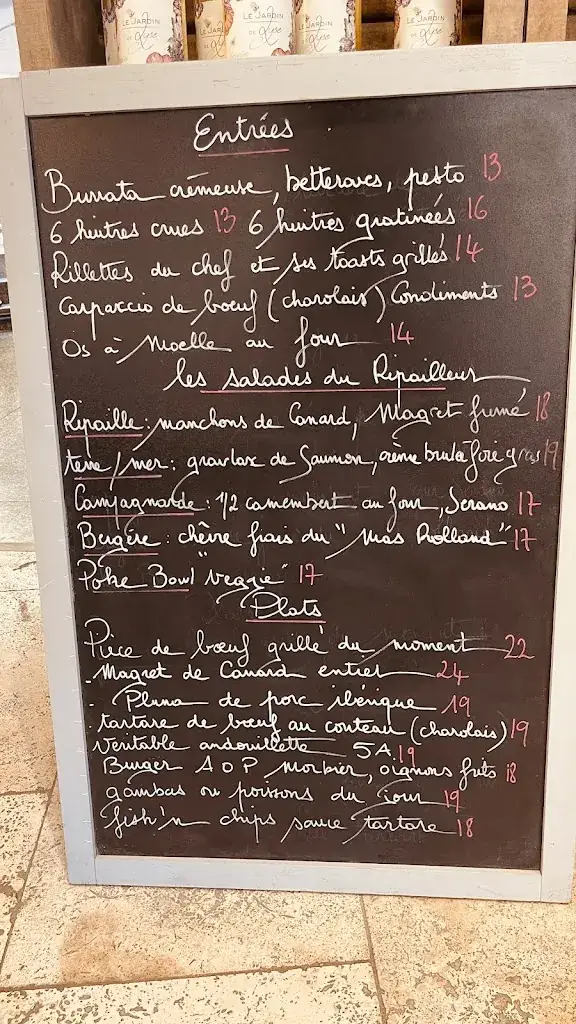 LE JARDIN
DE Lyse
LE JARDIN
DE Lyse
LE JARDIN
DE Lyse
LE JARDIN
DE Lyse
Entrées
Burrata crémeuse, betteraves, pesto 13
6 huitres crues 13 6 huitres gratinées 16
Rillettes du chef et ses toasts grillés 14
Carpaccio de boeuf (charolais) Condiments 13
Os à Moelle au four 14
les salades du Ripailleur
Ripaille : manchons de Canard, Magret fumé 18
terre/mer : gravlax de Saumon, crème brulée foie gras 19
Campagnarde : 1/2 camembert au four, Serano 17
Bergère : chèvre frais du "Mas Rolland" 17
Poke Bowl "veggie" 17
Plats
Pièce de boeuf grillé du moment 22
- Magret de Canard entier 24
- Pluma de porc ibérique 19
tartare de boeuf au couteau (charolais) 19
Véritable andouillette 5A 19
Burger AOP Morbier, oignons frits 18
gambas ou poissons du jour 19
fish'n chips sauce tartare 18